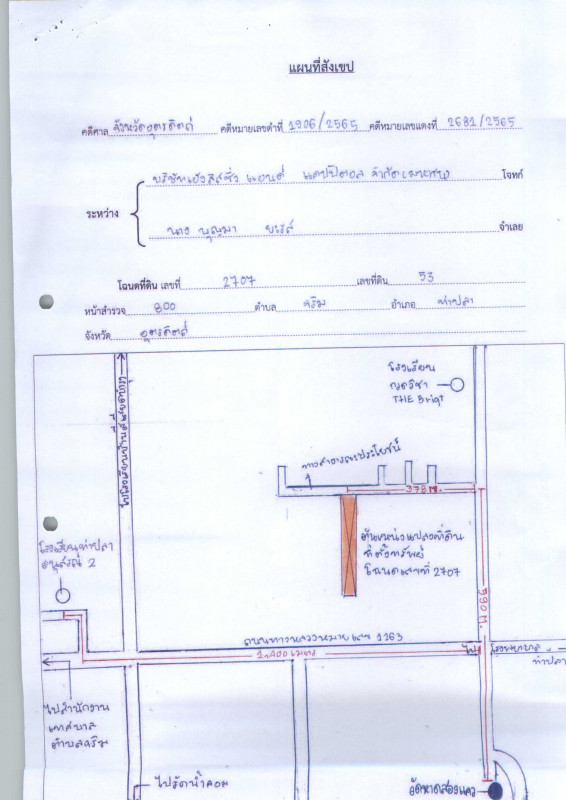 แผนที่สังเขป
คดีศาล จังหวัดอุตรดิตถ์ คดีหมายเลขดำที่ 1906/2565 คดีหมายเลขแดงที่ 2681/2565
บริษัทเอ็ม ลิสซิ่ง แอนด์ แคปปิตอล จำกัด(มหาชน) โจทก์
ระหว่าง
นาง บุญมา จำเลย
โฉนดที่ดิน เลขที่ 2707 เลขที่ดิน 53
หน้าสำรวจ 800 ตำบล จริม อำเภอ ท่าปลา
จังหวัด อุตรดิตถ์
โรงเรียน
THE Brigt
ทางสาธารณประโยชน์
378 ม.
ตำแหน่งแปลงที่ดิน
ที่ตั้งทรัพย์
โฉนดเลขที่ 2707
โรงเรียนท่าปลา
อนุสรณ์ 2
590 ม.
ถนนทางหลวงหมายเลข 1163
1,400 เมตร
ไป โรงพยาบาล
ท่าปลา
ไปสำนักงาน
เทศบาล
ตำบลจริม
ไปวัดน้ำลอม
วัดหาดสองแคว